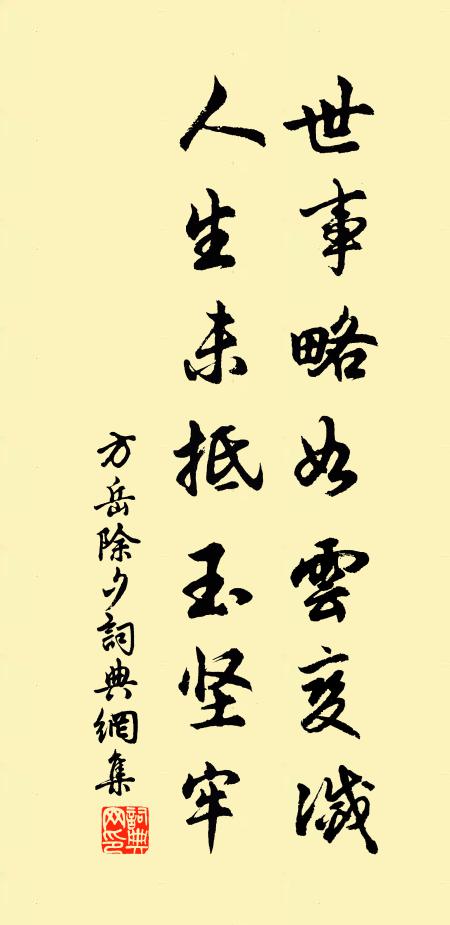 世事略如雲变滅
人生未抵玉坚牢
方岳除夕詞典網集
詞典网印